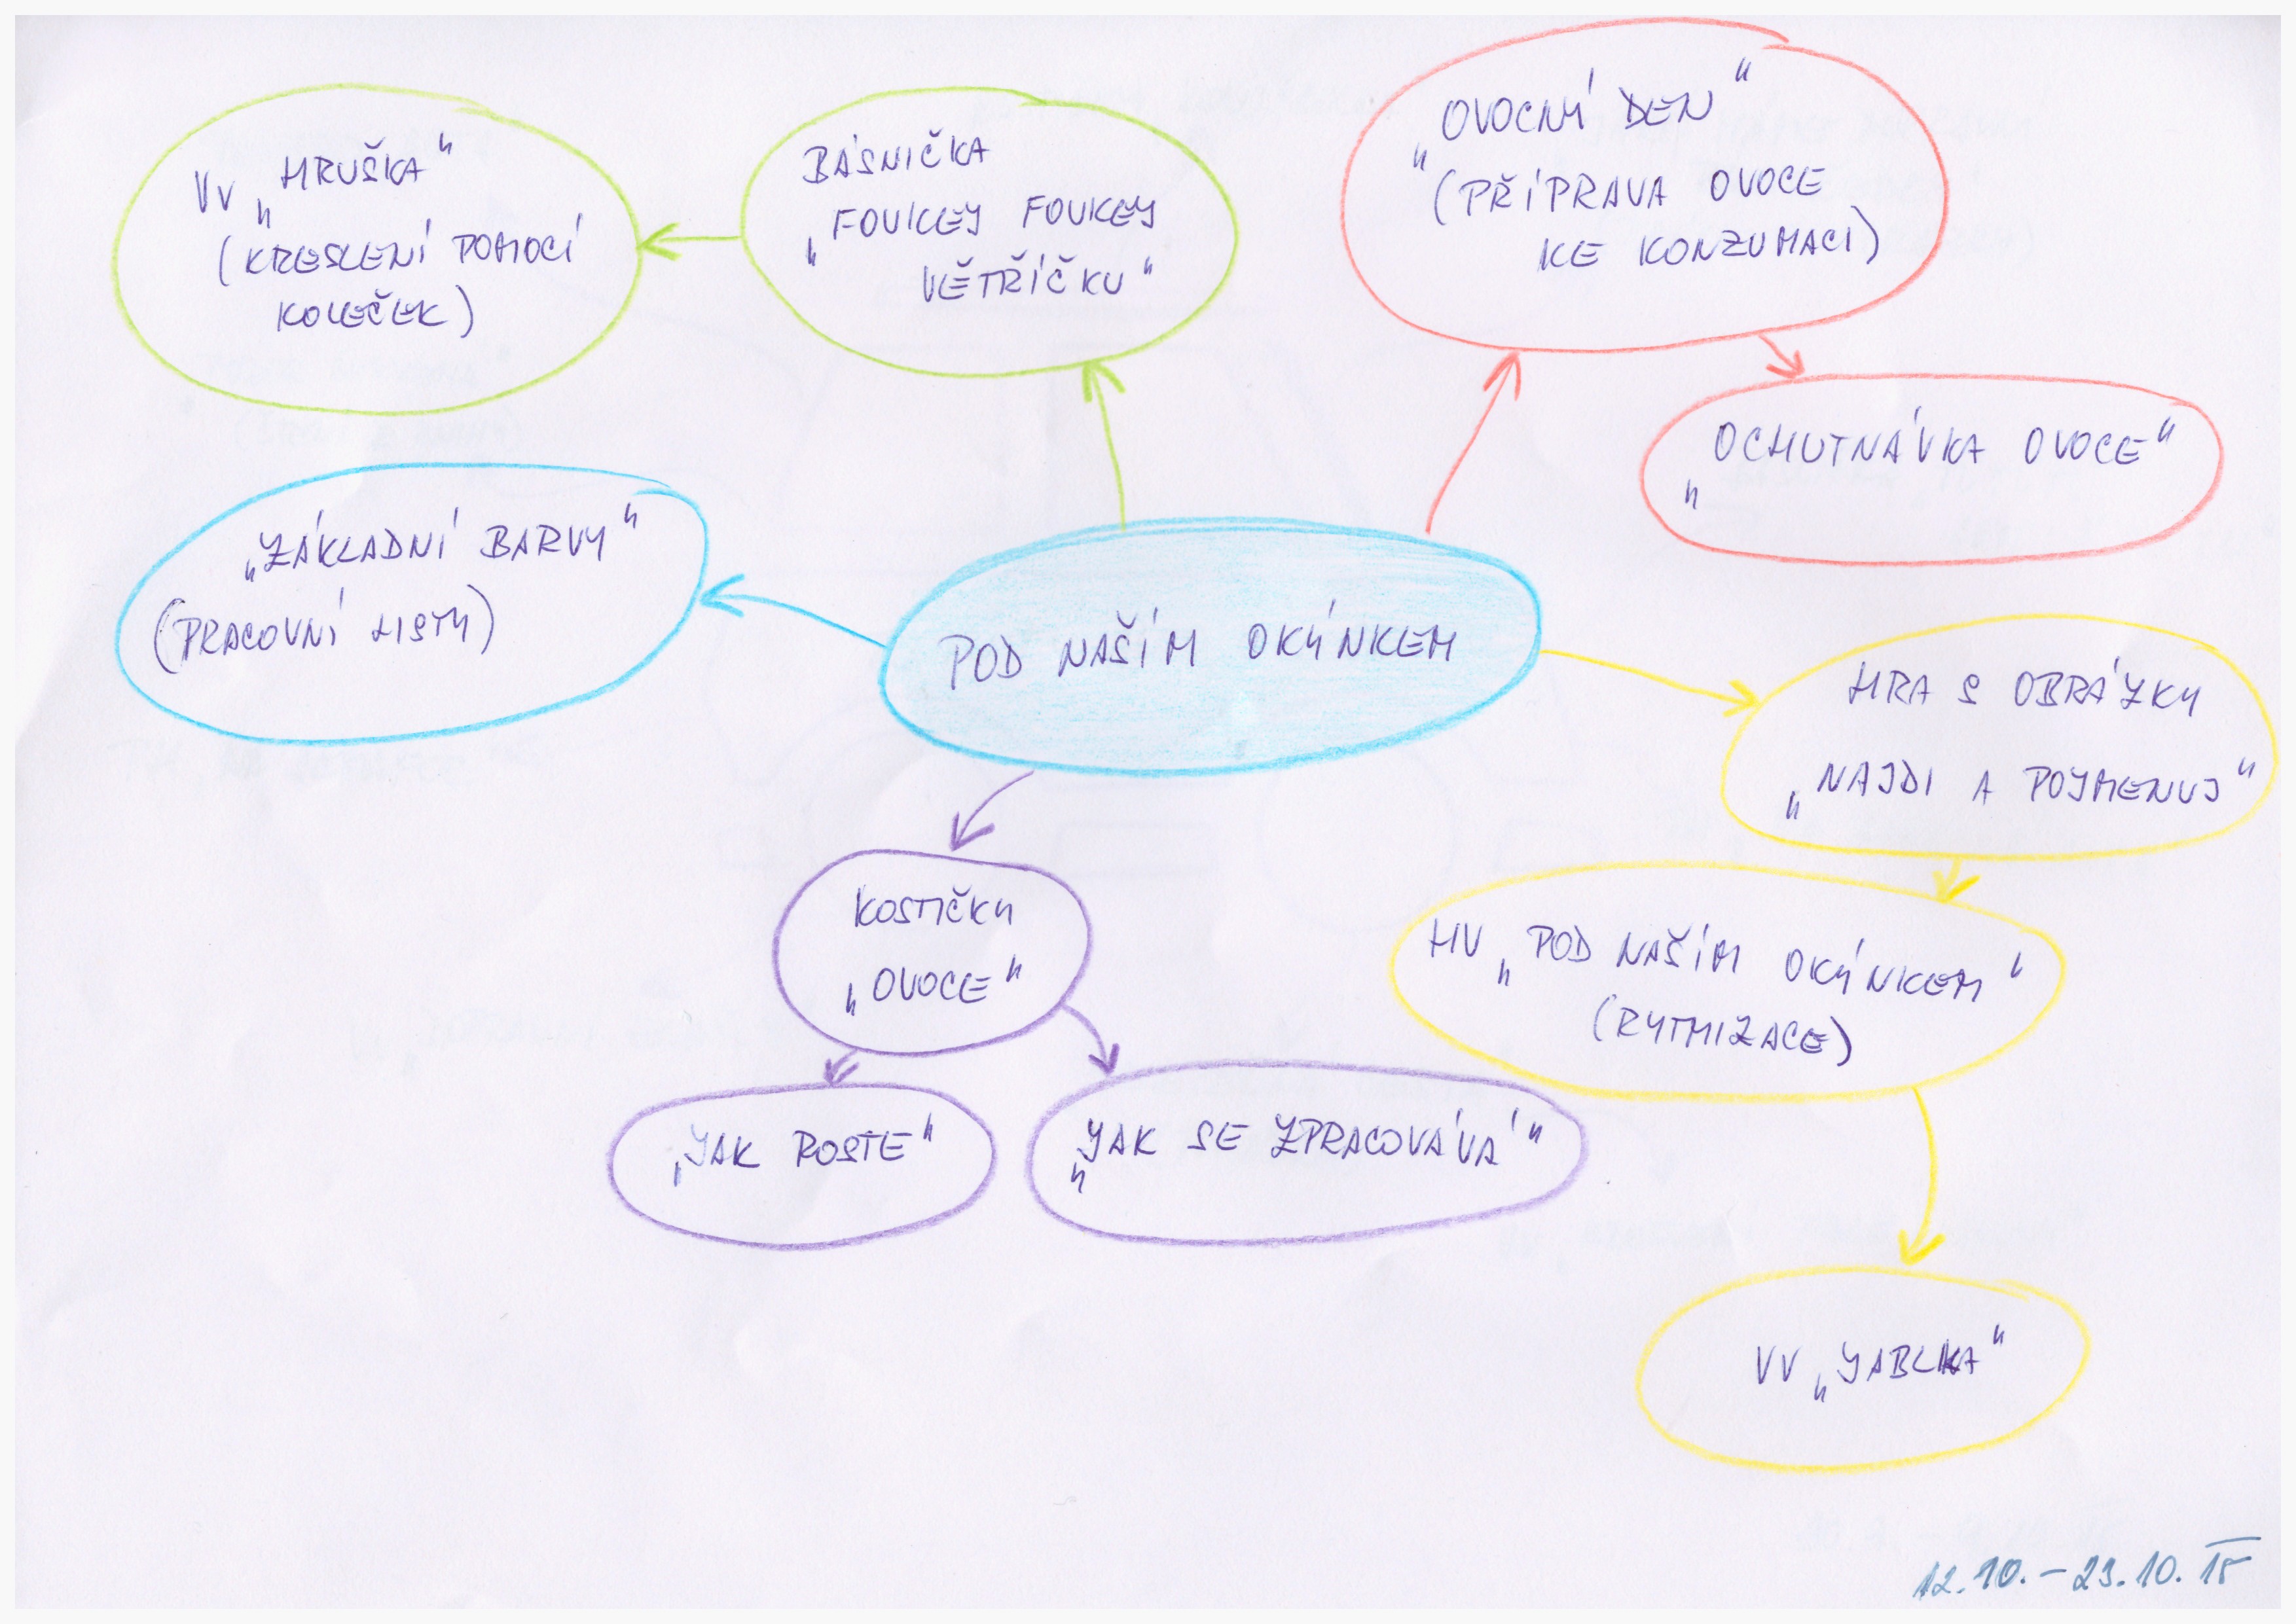 VV „HRUŠKA"
(KRESLENÍ POMOCÍ
KOLEČEK)
BÁSNIČKA
„FOUKEJ FOUKEJ
VĚTŘÍČKU"
„OVOCNÝ DEN"
(PŘÍPRAVA OVOCE
KE KONZUMACI)
„OCHUTNÁVKA OVOCE"
„ZÁKLADNÍ BARVY"
(PRACOVNÍ LISTY)
POD NAŠÍM OKÝNKEM
HRA S OBRÁZKY
„NAJDI A POJMENUJ"
KOSTIČKY
„OVOCE"
HV „POD NAŠÍM OKÝNKEM"
(RYTMIZACE)
„JAK ROSTE"
„JAK SE ZPRACOVÁVÁ"
VV „JABLKA"
12.10.-23.10.15